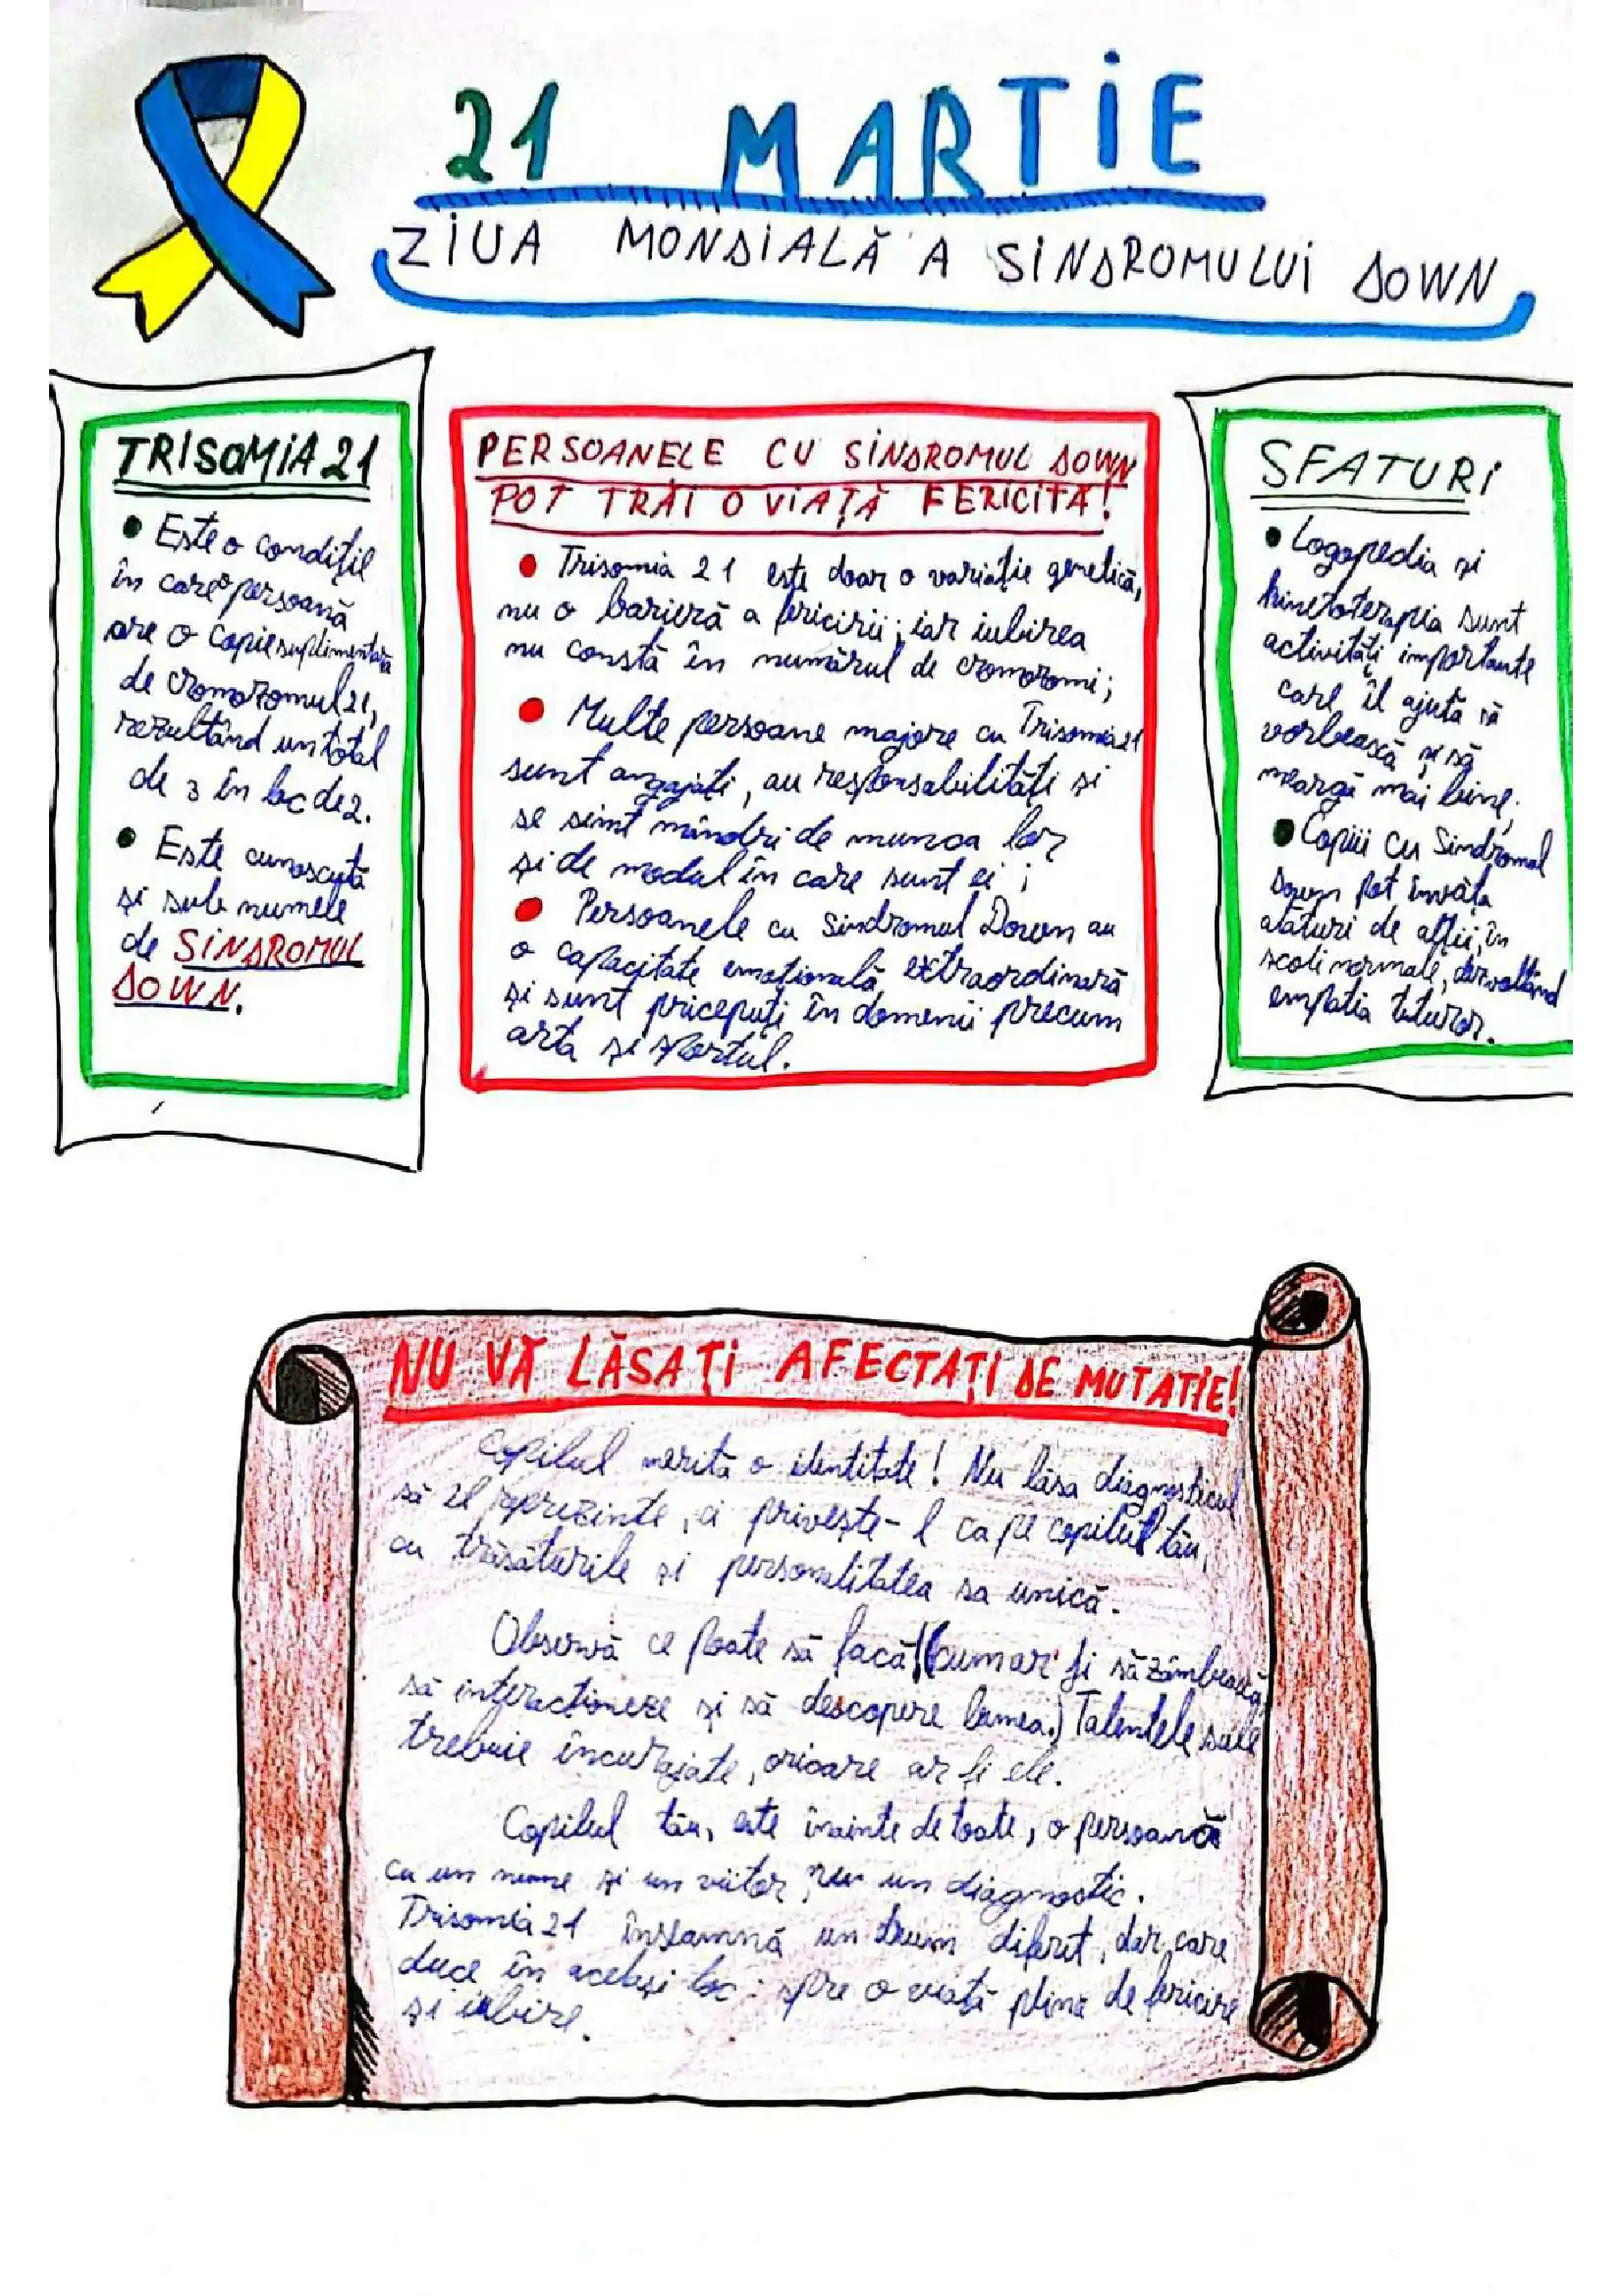 21 MARTIE
ZIUA MONDIALĂ A SINDROMULUI DOWN
TRISOMIA 21
• Este o condiție
în care o persoană
are o copie suplimentară
de cromozomul 21,
rezultând un total
de 3 în loc de 2.
• Este cunoscută
și sub numele
de SINDROMUL
DOWN.
PERSOANELE CU SINDROMUL DOWN
POT TRĂI O VIAȚĂ FERICITĂ!
• Trisomia 21 este doar o variație genetică,
nu o barieră a fericirii; iar iubirea
nu constă în numărul de cromozomi;
• Multe persoane majore cu Trisomia 21
sunt angajați, au responsabilități și
se simt mândri de munca lor
și de modul în care sunt ei;
• Persoanele cu Sindromul Down au
o capacitate emoțională extraordinară
și sunt pricepuți în domenii precum
arta și sportul.
SFATURI
• Logopedia și
kinetoterapia sunt
activități importante
care îl ajută să
vorbească și să
meargă mai bine;
• Copiii cu Sindromul
Down pot învăța
alături de alții, în
școli normale, dezvoltând
empatia tuturor.
NU VĂ LĂSAȚI AFECTAȚI DE MUTAȚIE!
Copilul merită o identitate! Nu lăsa diagnosticul
să îl reprezinte, ci privește-l ca pe copilul tău,
cu trăsăturile și personalitatea sa unică.
Observă ce poate să facă (cum ar fi să zâmbească,
să interacționeze și să descopere lumea.) Talentele sale
trebuie încurajate, oricare ar fi ele.
Copilul tău, este înainte de toate, o persoană
cu un nume și un viitor, nu un diagnostic.
Trisomia 21 înseamnă un drum diferit, dar care
duce în același loc: spre o viață plină de fericire
și iubire.